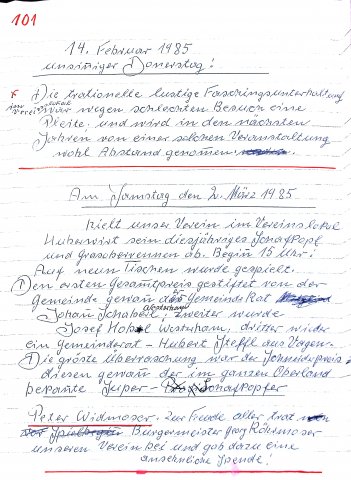 101
14. Februar 1985
unsiniger Donerstag!
* Die trationelle lustige Faschingsunterhaltung
im Vereinslokal war wegen schlechten Besuch eine
Pleite, und wird in den nächsten
Jahren von einer solchen Veranstaltung
wohl Abstand genomen.
Am Samstag den 2. März 1985
hielt unser Verein im Vereinslokal
Huberwirt sein diesjähriges Schafkopf
und Grasoberrennen ab. Begin 15 Uhr!
Auf neun Tischen wurde gespielt.
Den ersten Gesamtpreis gestiftet von der
Gemeinde gewan der Gemeinde Rat
Johan Schaberl, zweiter wurde
Josef Westerham, dritter wider
ein Gemeinderat - Hubert Steffl aus Vagen.
Die gröste Überraschung war der Schneiderpreis
diesen gewan der im ganzen Oberland
bekante Super- Schafkopfer
Peter Widmoser. Zur Freude aller trat
Bürgermeister Georg Röhrmoser
unseren Verein bei und gab dazu eine
ansehnliche Spende!